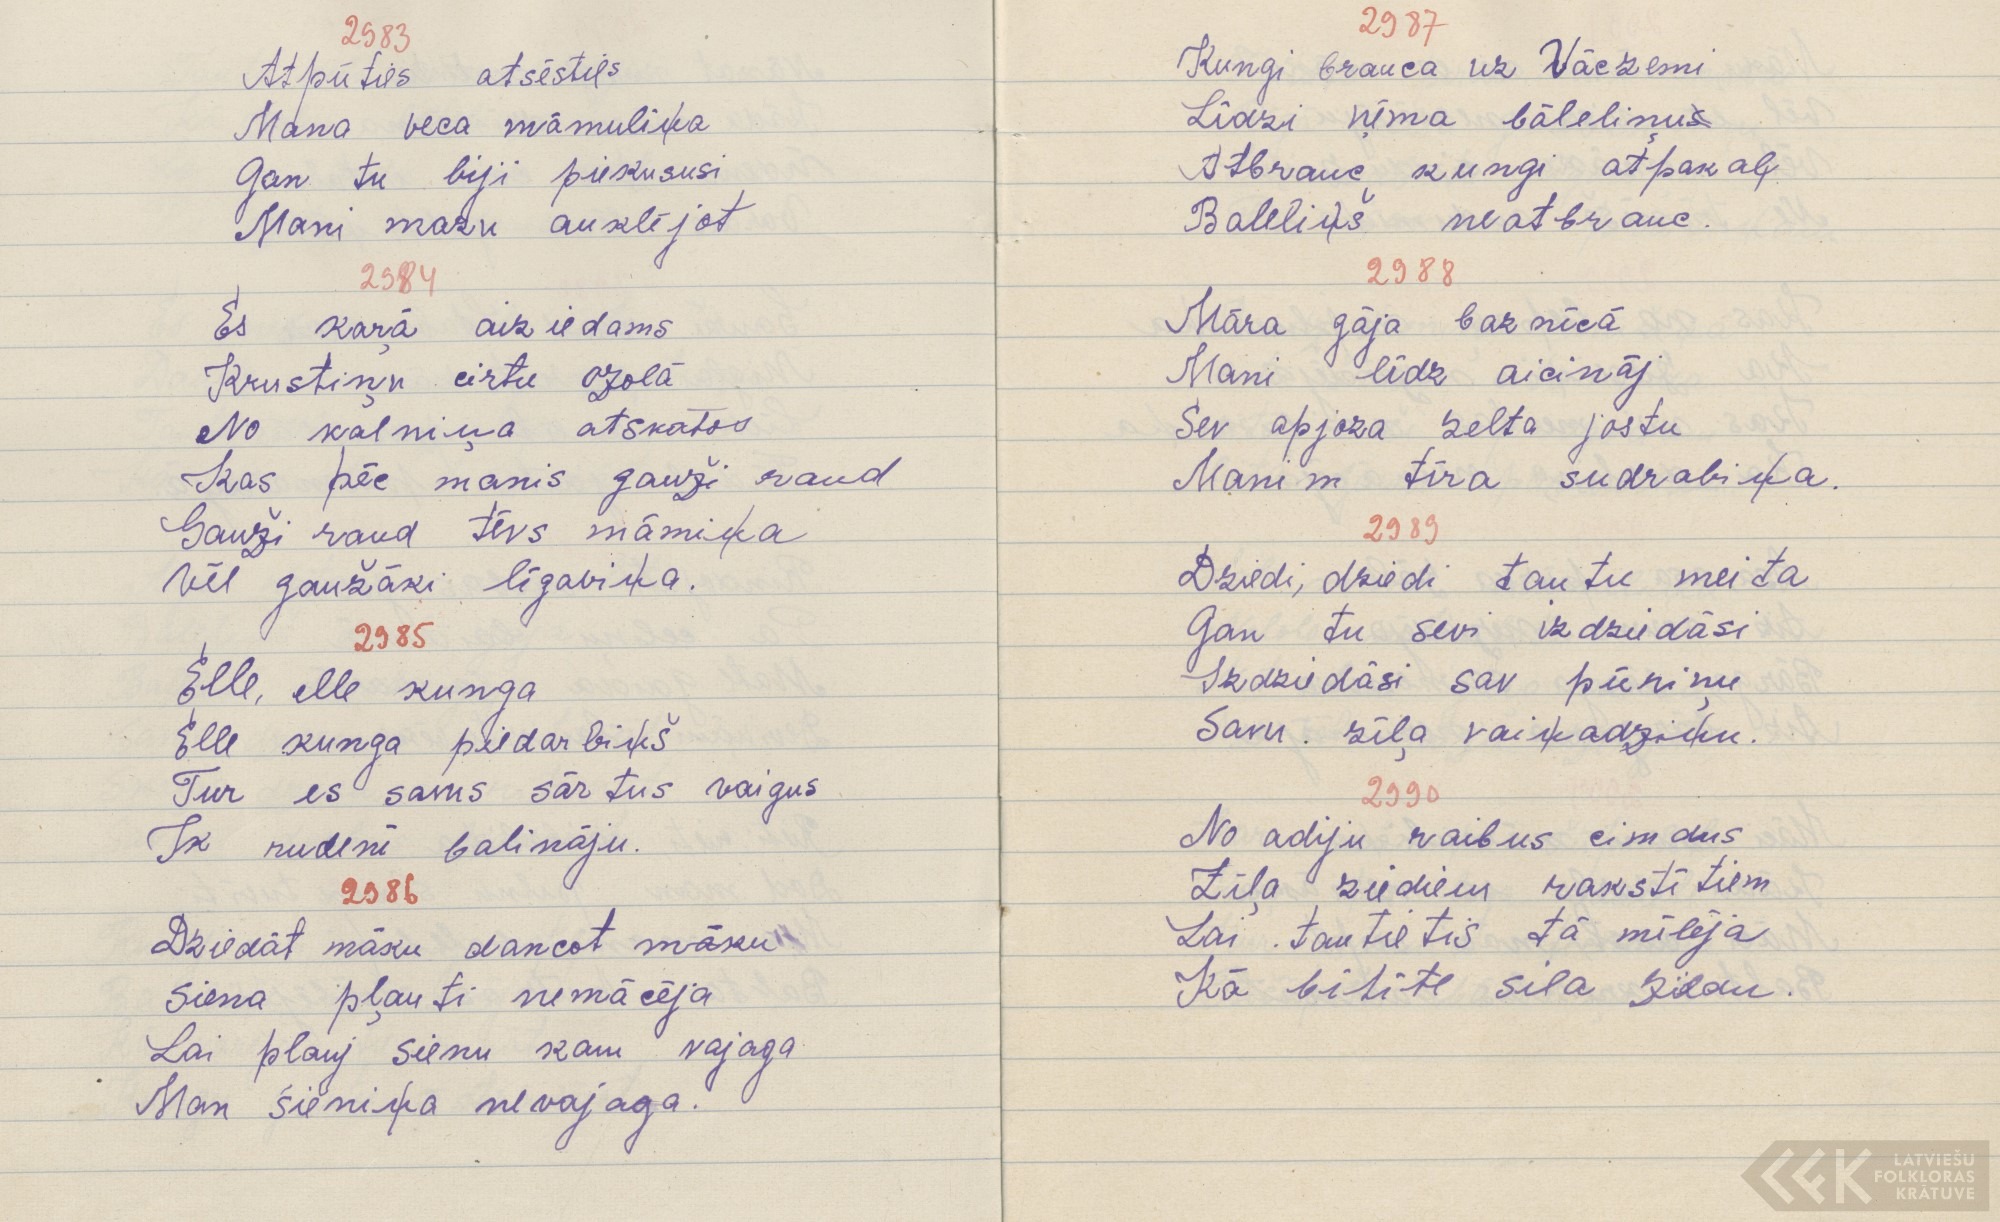 2983
Atpūties atsēsties
Mana veca māmuliņa
Gan tu biji piekususi
Mani mazu auklējot
2984
Es kaŗā aiziedams
Krustiņu cirtu ozolā
No kalniņa atskatos
Kas pēc manis gauži raud
Gauži raud tēvs māmiņa
Vēl gaužāki līgaviņa.
2985
Elle, elle kunga
Elle kunga piedarbiņš
Tur es savus sārtus vaigus
Ik rudeni balināju.
2986
Dziedāt māku dancot māku
Siena pļauti nemācēja
Lai plauj sienu kam vajaga
Man sieniņa nevajaga.
2987
Kungi brauca uz Vāczemi
Līdzi ņēma bāleliņus
Atbrauc kungi atpakaļ
Baleliņš neatbrauc.
2988
Māra gāja baznīcā
Mani līdz aicināj
Sev apjoza zelta jostu
Manim tīra sudrabiņa.
2989
Dziedi, dziedi tautu meita
Gan tu sevi izdziedāsi
Izdziedāsi sav pūriņu
Savu zīļa vaiņadziņu.
2990
No adiju raibus cimdus
Zīļa ziediem rakstītiem
Lai tautietis tā mīlēja
Kā bitīte sila ziedu.
LATVIEŠU
FOLKLORAS
KRĀTUVE